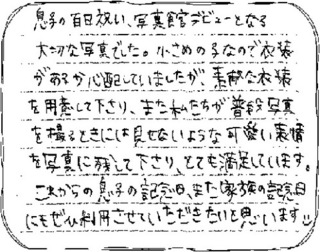 息子の百日祝い、写真館デビューとなる
大切な写真でした。小さめの子なので衣装
があるか心配していましたが、素敵な衣装
を用意して下さり、また私たちが普段写真
を撮るときには見せないような可愛い表情
を写真に残して下さり、とても満足しています。
これからの息子の記念日、また家族の記念日
にもぜひ利用させていただきたいと思います